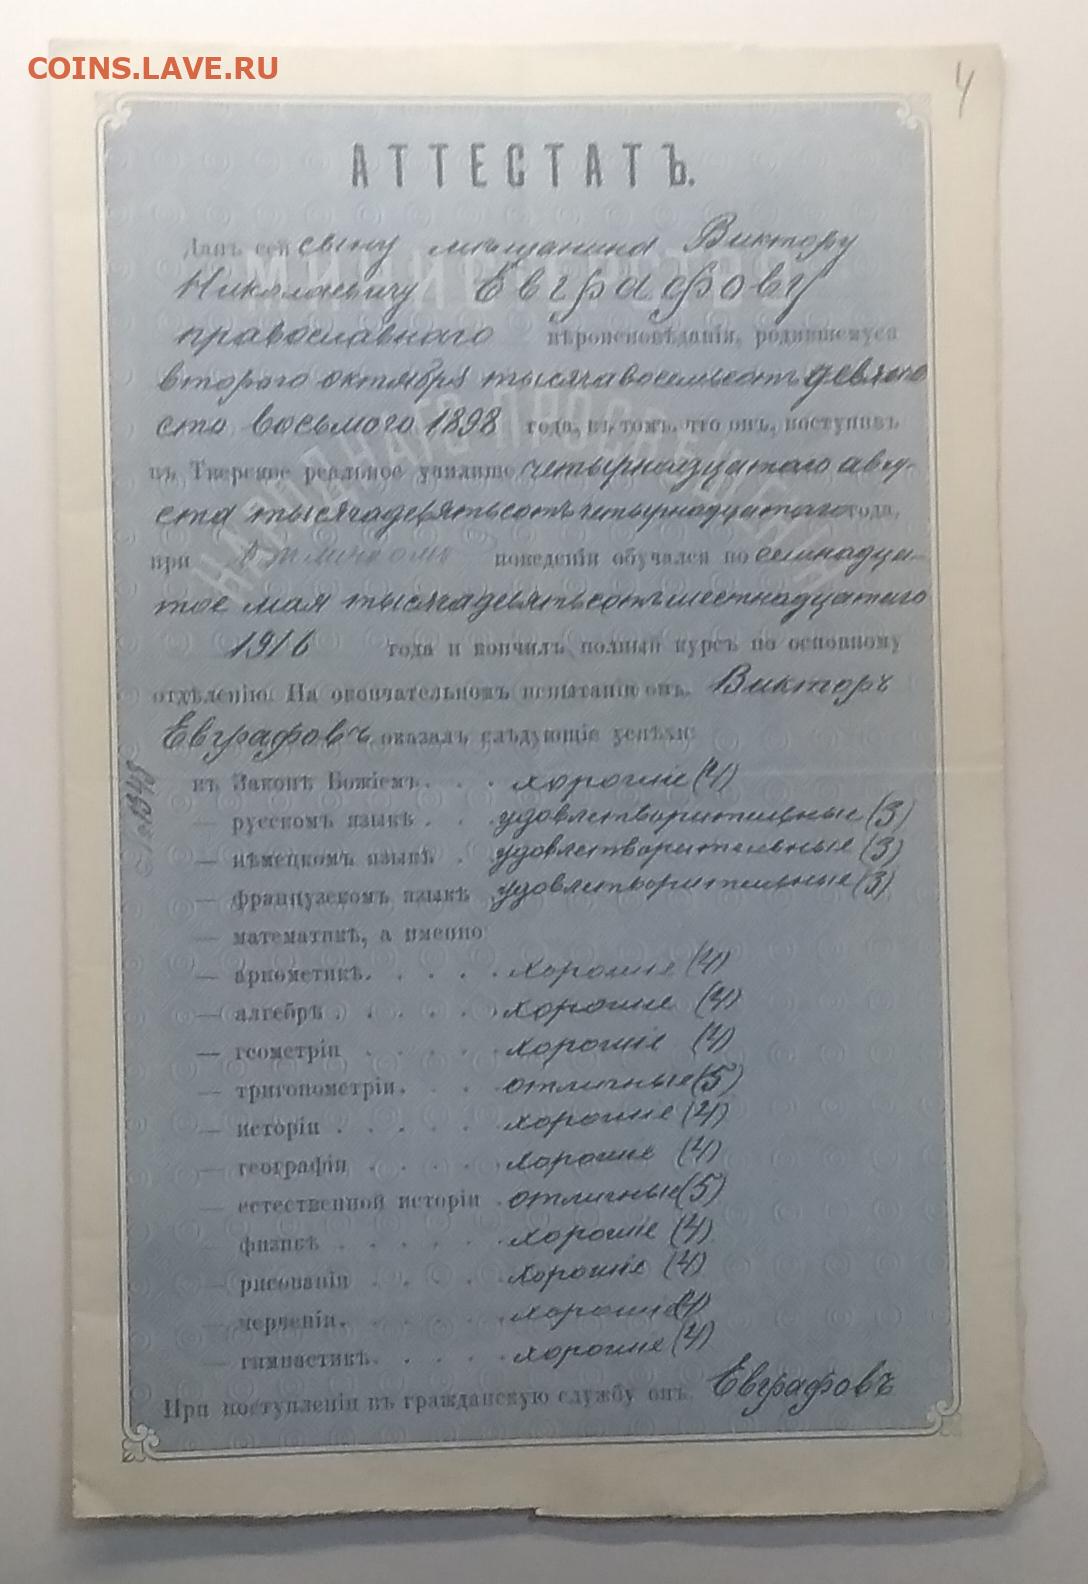 COINS.LAVE.RU
4
АТТЕСТАТЪ.
Данъ сей сыну мѣщанина Виктору
Николаевичу Евграфову
православнаго вѣроисповѣданія, родившемуся
второго октября тысяча восемьсотъ девяно
сто восьмого 1898 года, въ томъ, что онъ, поступивъ
въ Тверское реальное училище четырнадцатаго авгу-
ста тысяча девятьсотъ четырнадцатаго года,
при отличномъ поведеніи обучался по семнадца-
тое мая тысяча девятьсотъ шестнадцатаго
1916 года и кончилъ полный курсъ по основному
отдѣленію. На окончательномъ испытаніи онъ, Викторъ
Евграфовъ оказалъ слѣдующіе успѣхи:
въ Законѣ Божіемъ . . . хорошіе (4)
— русскомъ языкѣ . . . удовлетворительные (3)
— нѣмецкомъ языкѣ . удовлетворительные (3)
— французскомъ языкѣ . удовлетворительные (3)
— математикѣ, а именно
— ариѳметикѣ. . . . . хорошіе (4)
— алгебрѣ . . . . . хорошіе (4)
— геометріи . . . . хорошіе (4)
— тригонометріи. . . . отличные (5)
— исторіи . . . . . хорошіе (4)
— географіи . . . . хорошіе (4)
— естественной исторіи . отличные (5)
— физикѣ . . . . . хорошіе (4)
— рисованіи . . . . хорошіе (4)
— черченіи. . . . . хорошіе (4)
— гимнастикѣ. . . . . хорошіе (4)
При поступленіи въ гражданскую службу онъ, Евграфовъ
МИНИСТЕРСТВО
НАРОДНАГО ПРОСВѢЩЕНІЯ
№ 1348